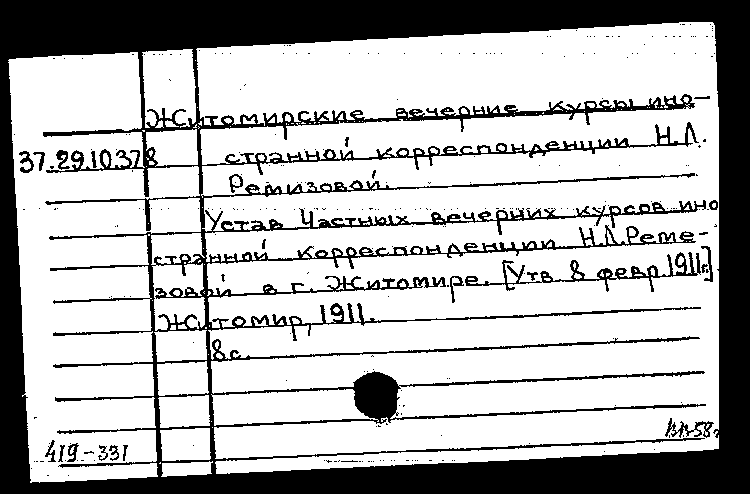 Житомирские вечерние курсы ино-
37.29.10.378 странной корреспонденции Н.Л.
Ремизовой.
Устав Частных вечерних курсов ино
странной корреспонденции Н.Л.Реме-
зовой в г. Житомире. [Утв 8 февр 1911г.].
Житомир, 1911.
8с.
419-331